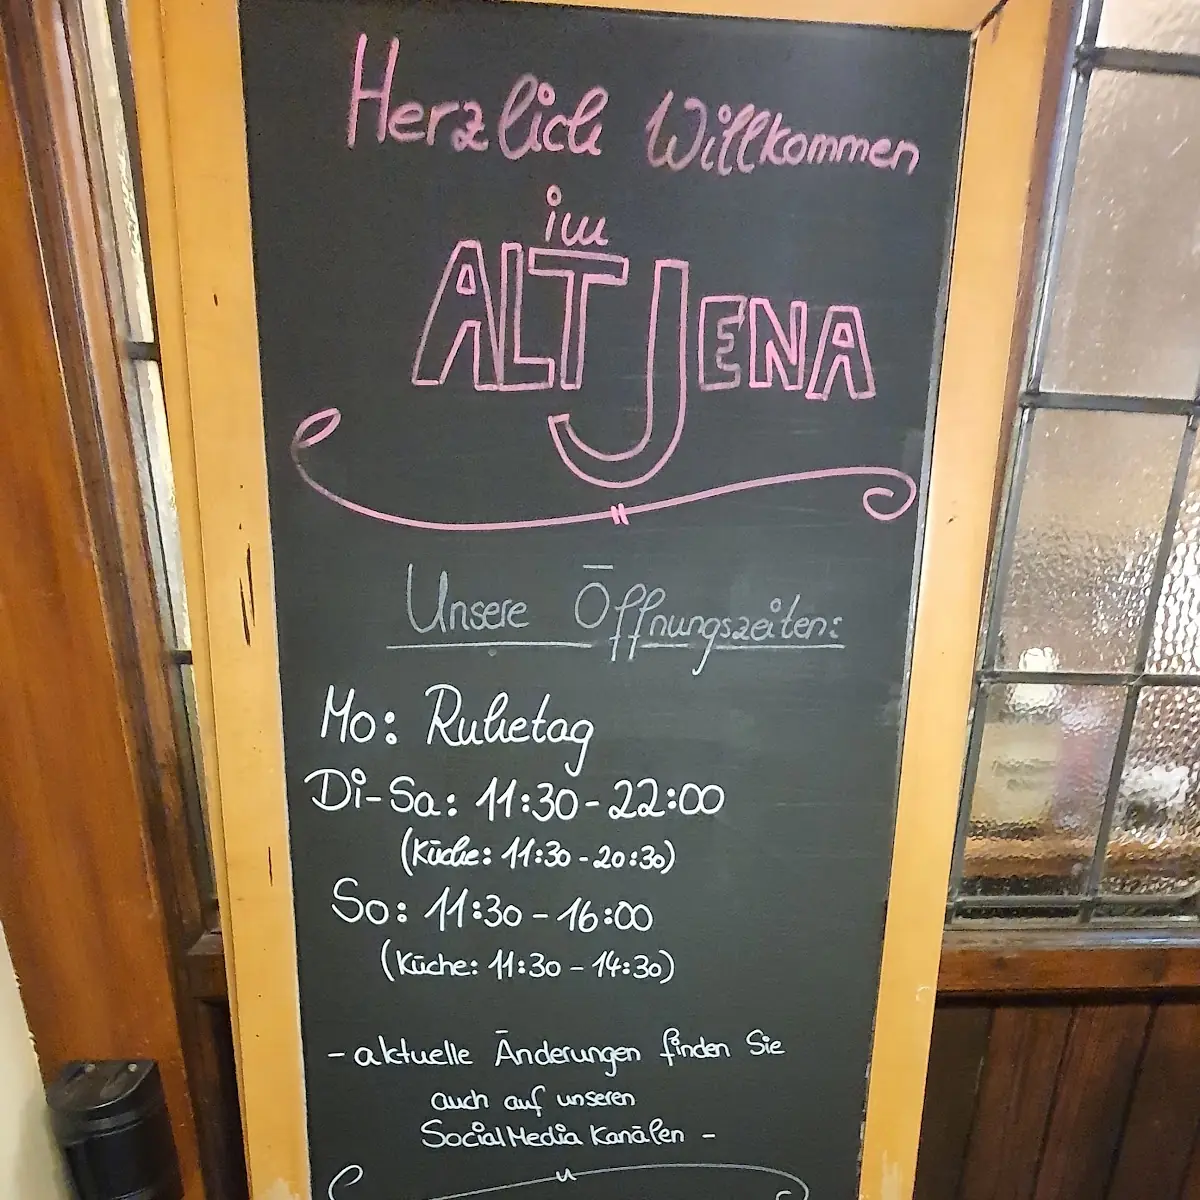 Herzlich Willkommen
im
ALT JENA
Unsere Öffnungszeiten:
Mo: Ruhetag
Di-Sa: 11:30-22:00
(Küche: 11:30-20:30)
So: 11:30-16:00
(Küche: 11:30-14:30)
- aktuelle Änderungen finden Sie
auch auf unseren
Social Media Kanälen -